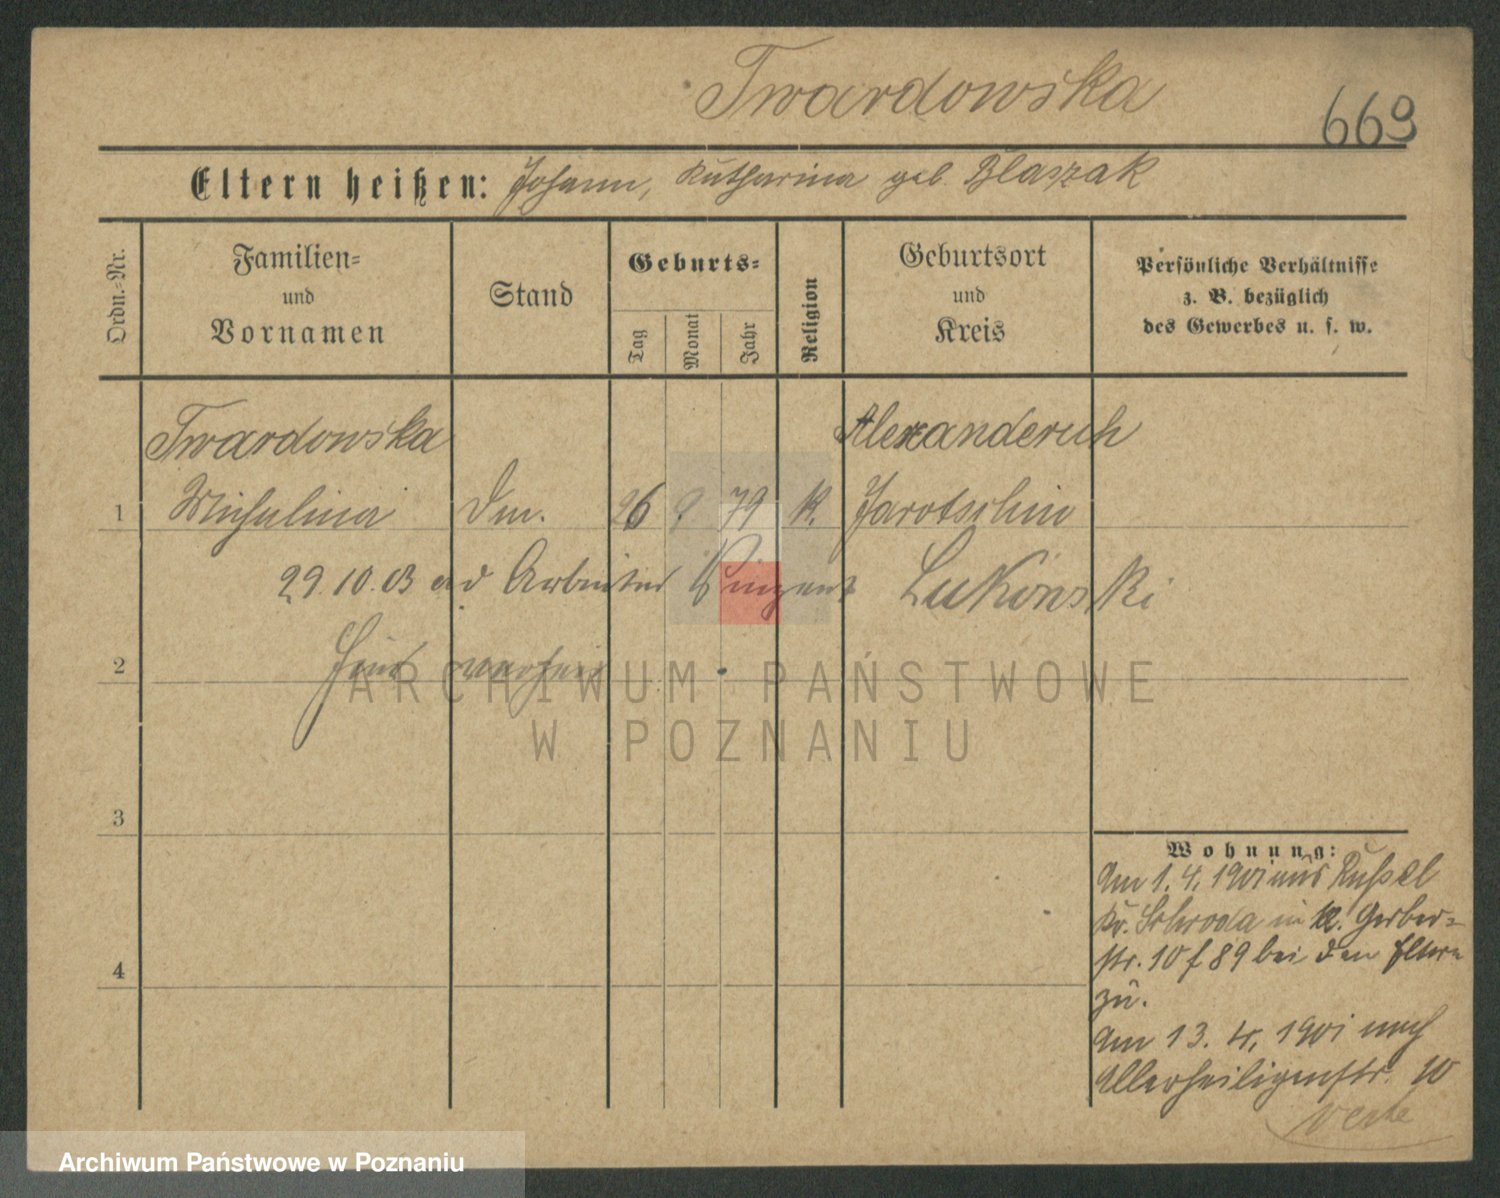 Twardowska
669
Eltern heißen: Johann, Katharina geb. Blaszak
Ordn.-Nr.
Familien-
und
Vornamen
Stand
Geburts-
Tag
Monat
Jahr
Religion
Geburtsort
und
Kreis
Persönliche Verhältnisse
z. B. bezüglich
des Gewerbes u. s. w.
Twardowska Alexanderuh
1 Michalina Dm. 26 9 79 K. Jarotschin
29.10.03 Arbeiter Vinzent Lukowski
2
3
4
Wohnung:
Am 1.4.1901 aus
Kr. Schroda in Gerber-
str. 10 f 89 bei den Eltern
zu.
Am 13. 4. 1901 nach
Allerheiligenstr.
verte
ARCHIWUM PAŃSTWOWE
W POZNANIU
Archiwum Państwowe w Poznaniu